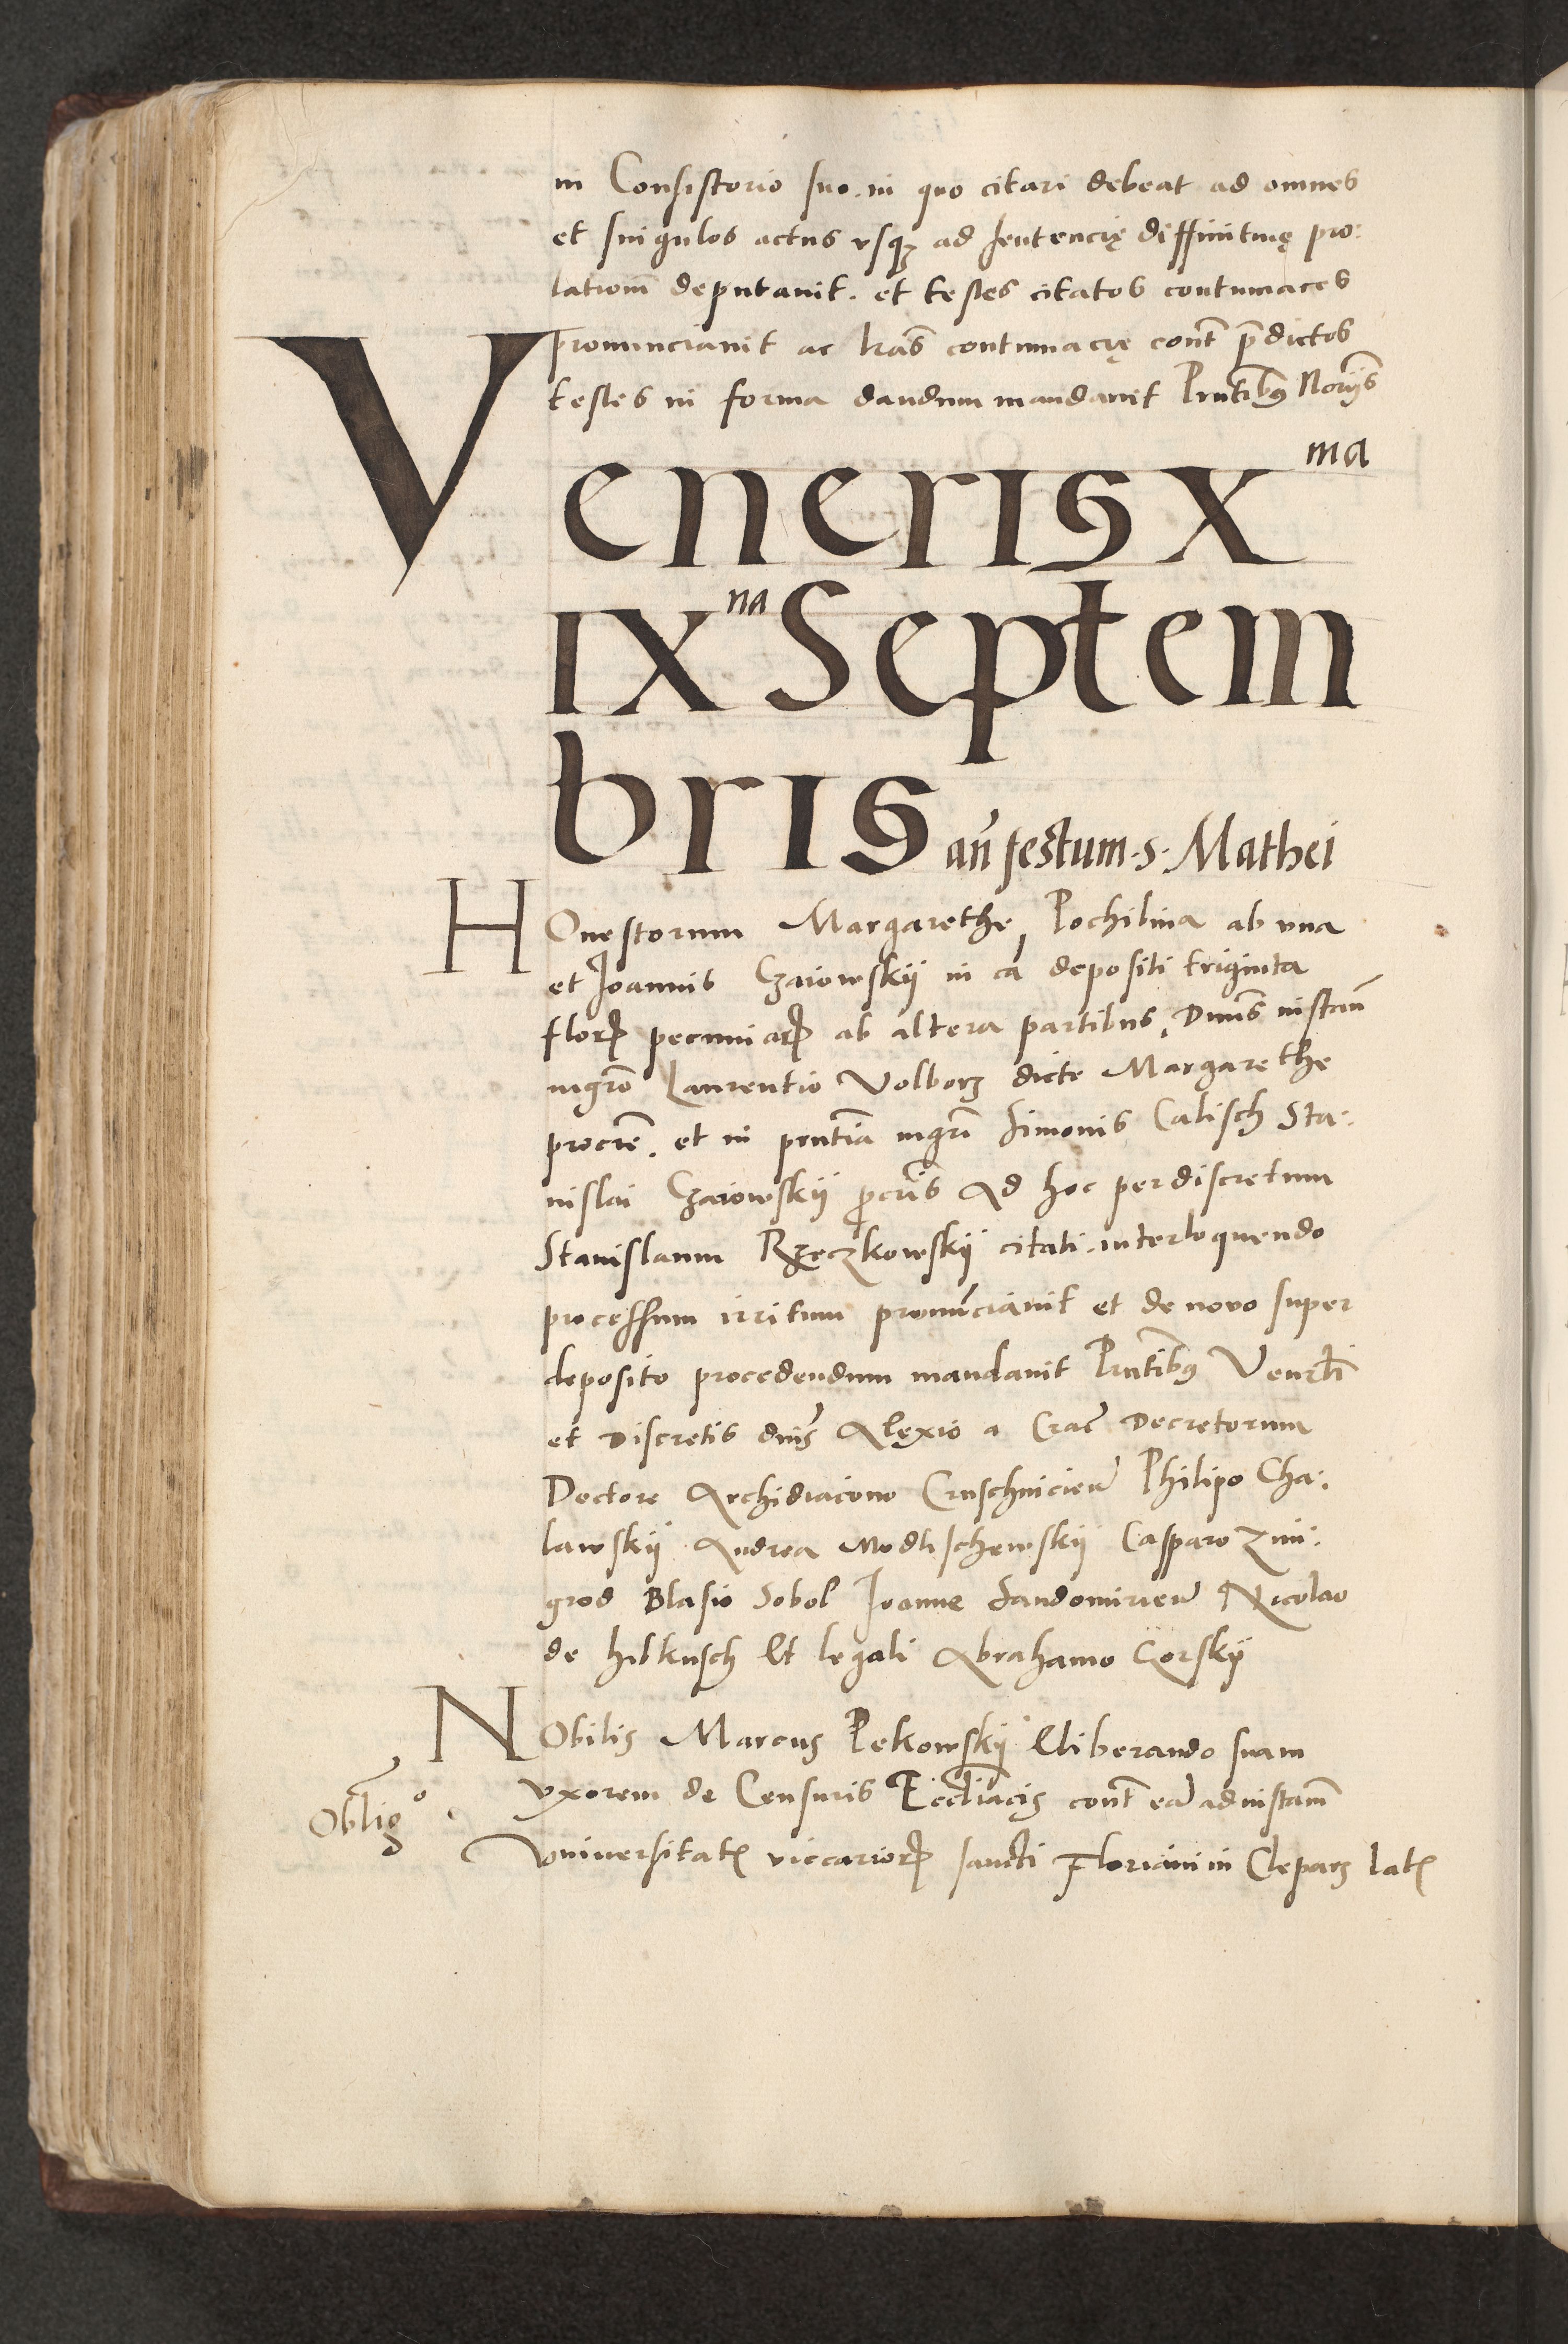 in Consistorio suo. in quo citari debeat ad omnes
et singulos actus vsqz ad sentencię diffinitiuę pro:
lationē deputauit. et testes citatos contumaces
pronunciauit ac lrās contumacię cont̄ p̄dictos
testes in forma dandum mandauit Pn̄tibus Norijs
Veneris X ma
IX na Septem
bris an̄ festum · s · Mathei
HOnestorum Margarethe Pochilina ab vna
et Joannis Czaiowskÿ in cā depositi triginta
florꝝ pecuniarꝝ ab altera partibus, Dnūs instan̄
mgrō Laurentio Volborz dicte Margarethe
procrē. et in pn̄tia mgrī Simonis Calisch Sta:
nislai Czaiowskÿ procrīs Ad hoc per discretum
Stanislaum Rzeczkowskÿ citati. interloquendo
processum irritum pronunciauit et de nouo super
deposito procedendum mandauit Pn̄tibus Venrłi
et Discretis dnīs Alexio a Crac̄ Decretorum
Doctore Archidiacono Cruschuicien̄ Philipo Cha:
lawskÿ Andrea Modlischewskÿ Casparo Zmi:
grod Blasio Sobol Joanne Sandomirien̄ Nicolao
de hilkusch Et legali Abrahamo Gorskÿ
NObilis Marcus Pekowskÿ Eliberando suam
Oblig o
vxorem de Censuris Eccłiacis cont̄ eā ad instan̄
Vniuersitatꝭ viccariorꝝ sancti Floriani in Cleparz latꝭ